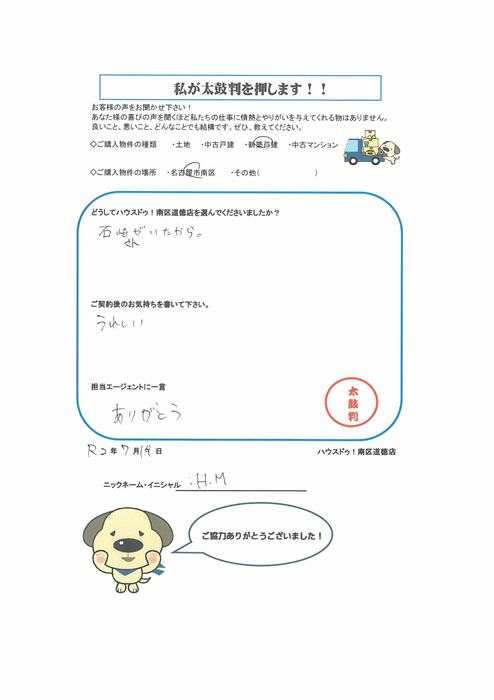 私が太鼓判を押します！！
お客様の声をお聞かせ下さい！
あなた様の喜びの声を聞くほど私たちの仕事に情熱とやりがいを与えてくれる物はありません。
良いこと、悪いこと、どんなことでも結構です。ぜひ、教えてください。
◇ご購入物件の種類 ・土地 ・中古戸建 ・新築戸建 ・中古マンション
◇ご購入物件の場所 ・名古屋市南区 ・その他( )
どうしてハウスドゥ！南区道徳店を選んでくださいましたか？
石崎さんがいたから。
ご契約後のお気持ちを書いて下さい。
うれしい
担当エージェントに一言
ありがとう
太鼓判
R2年7月19日
ハウスドゥ！南区道徳店
ニックネーム・イニシャル .H.M
ご協力ありがとうございました！